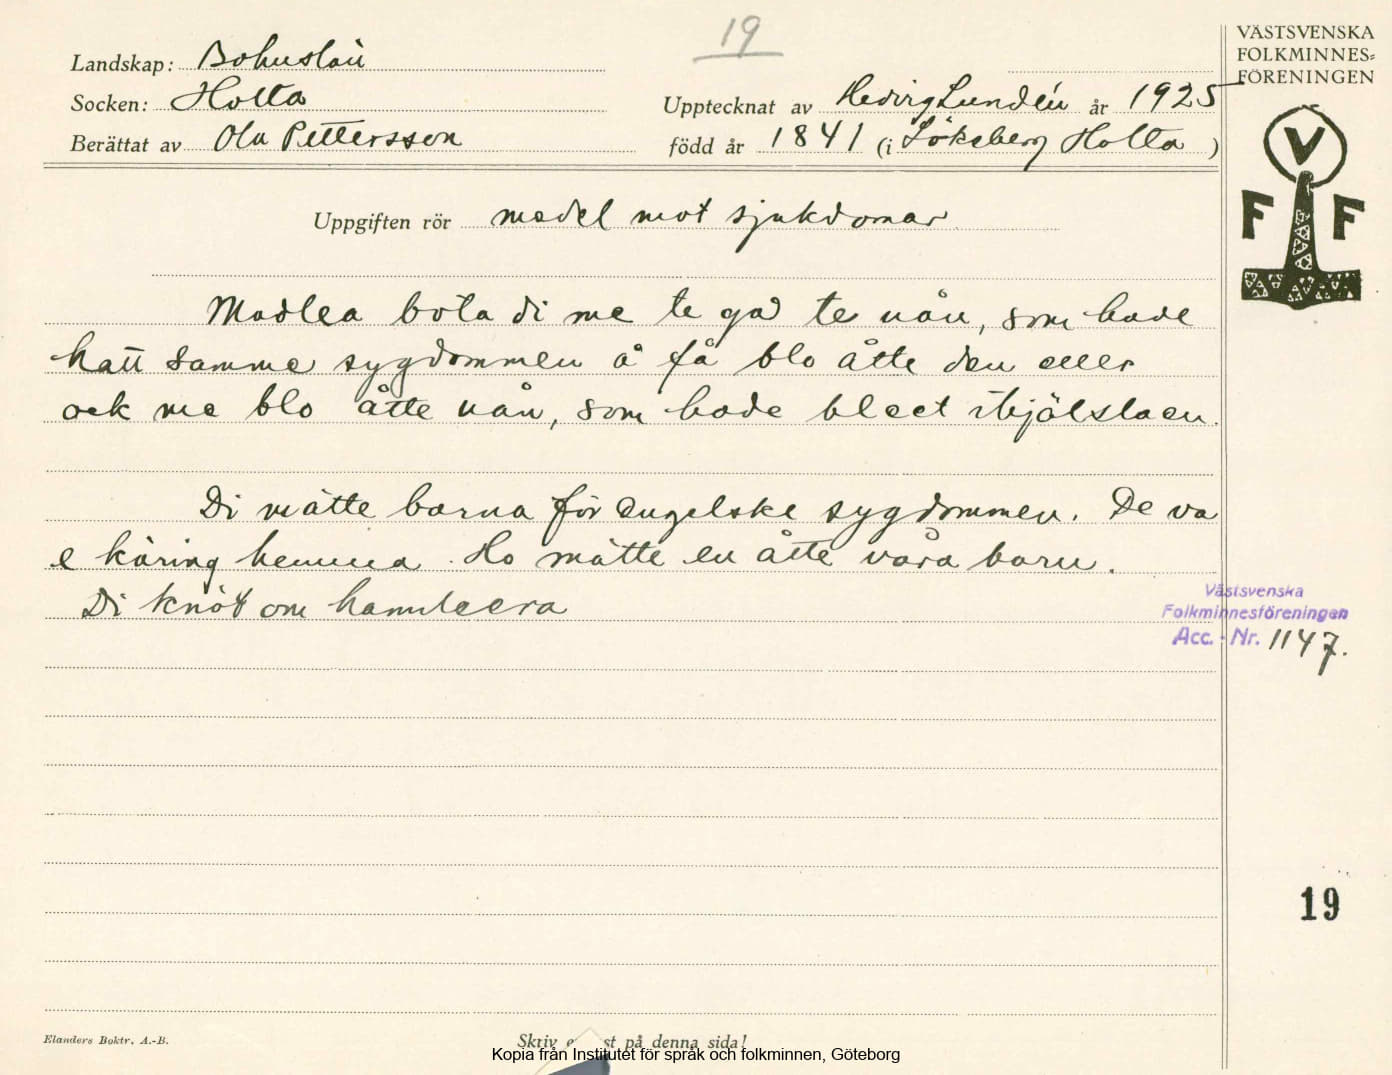 19
VÄSTSVENSKA
FOLKMINNES=
FÖRENINGEN
Landskap: Bohuslän
Socken: Holta
Upptecknat av Hedvig Lundén år 1925
Berättat av Ola Pettersson
född år 1841 (i Lökeberg Holta )
V
F F
Uppgiften rör medel mot sjukdomar
Maslea bota di me te ga te nån, som hade
hatt samme sygdommen å få blo åtte den eller
ock me blo åtte nån, som hade bleet ihjälslaen.
Di mätte barna för engelske sygdommen. De va
e käring hemma. Ho mätte en åtte våra barn.
Di knöt om hannleera
Västsvenska
Folkminnesföreningen
Acc. - Nr. 1147.
19
Elanders Boktr. A.-B.
Skriv st på denna sida!
Kopia från Institutet för språk och folkminnen, Göteborg